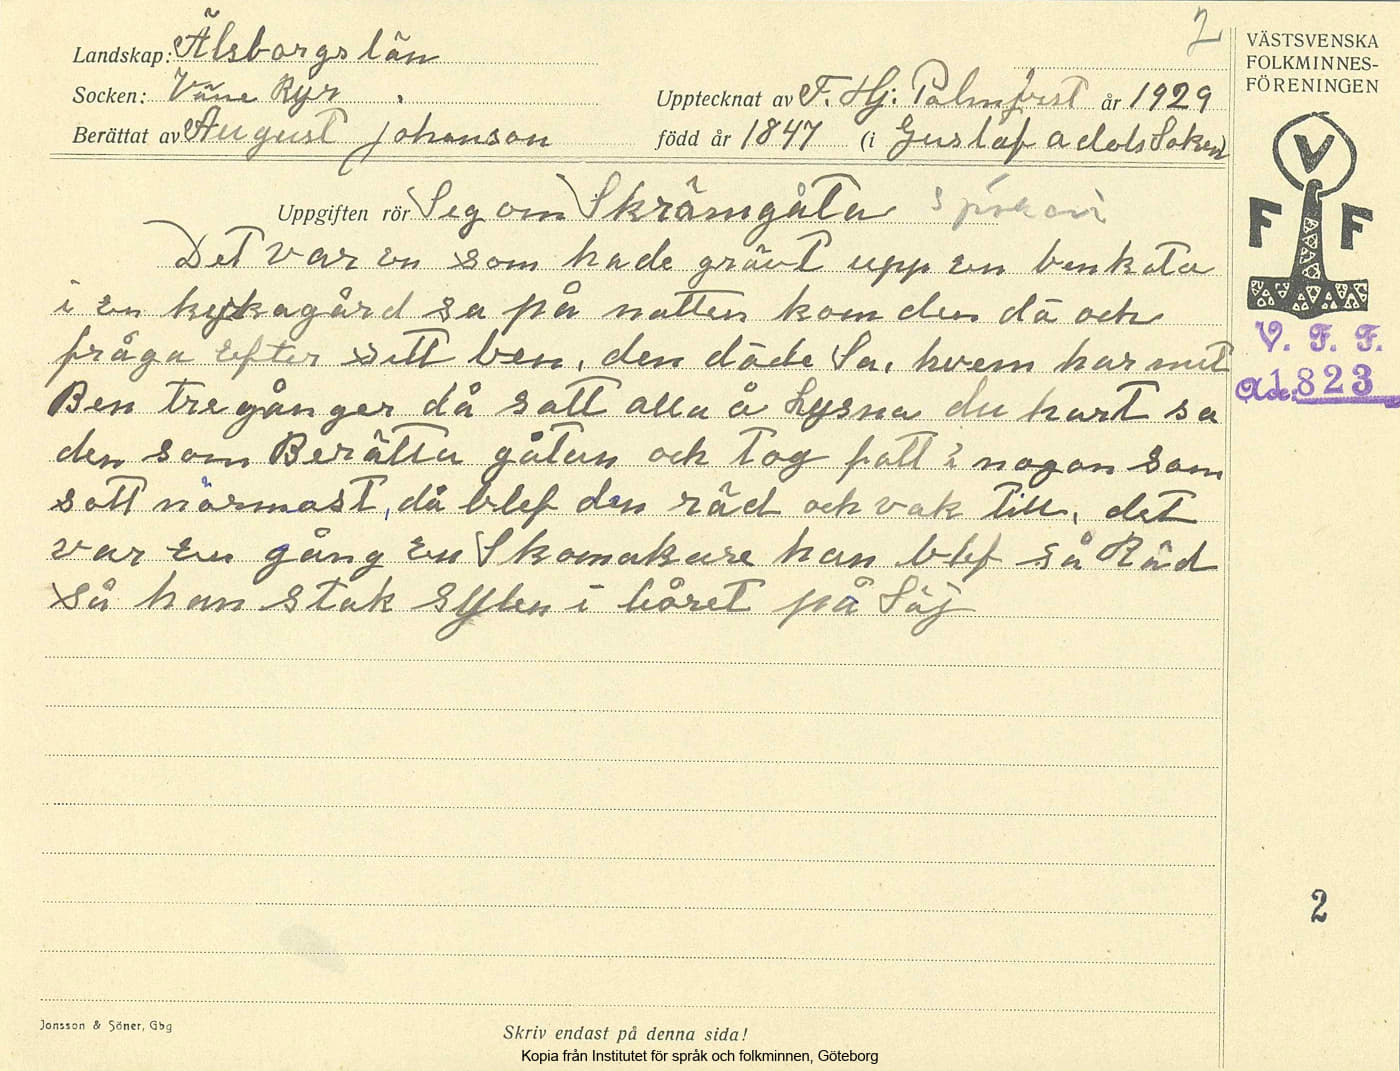 2
VÄSTSVENSKA
FOLKMINNES-
FÖRENINGEN
Landskap: Älsborgs län
Socken: Väne Ryr
Upptecknat av F. Hj. Palmqvist år 1929
Berättat av August Johanson
född år 1847 (i Gustaf adols Soken)
V
F F
Uppgiften rör Seg om Skrämgåta
Det var en som hade grävt upp en benkota
i en kyrkagård sa på natten kom den dö och
fråga efter sitt ben, den döde Sa, hvem har mit
Ben tre gånger då satt alla å Lysna du hart sa
den som Berätta gåtan och tog fatt i nogon som
satt närmast, då blef den räd och vak till, det
var en gång en Skomakare han blef så Räd
så han stak sylen i låret på Säj
V. F. F.
1823
2
Jonsson & Söner, Gbg
Skriv endast på denna sida!
Kopia från Institutet för språk och folkminnen, Göteborg